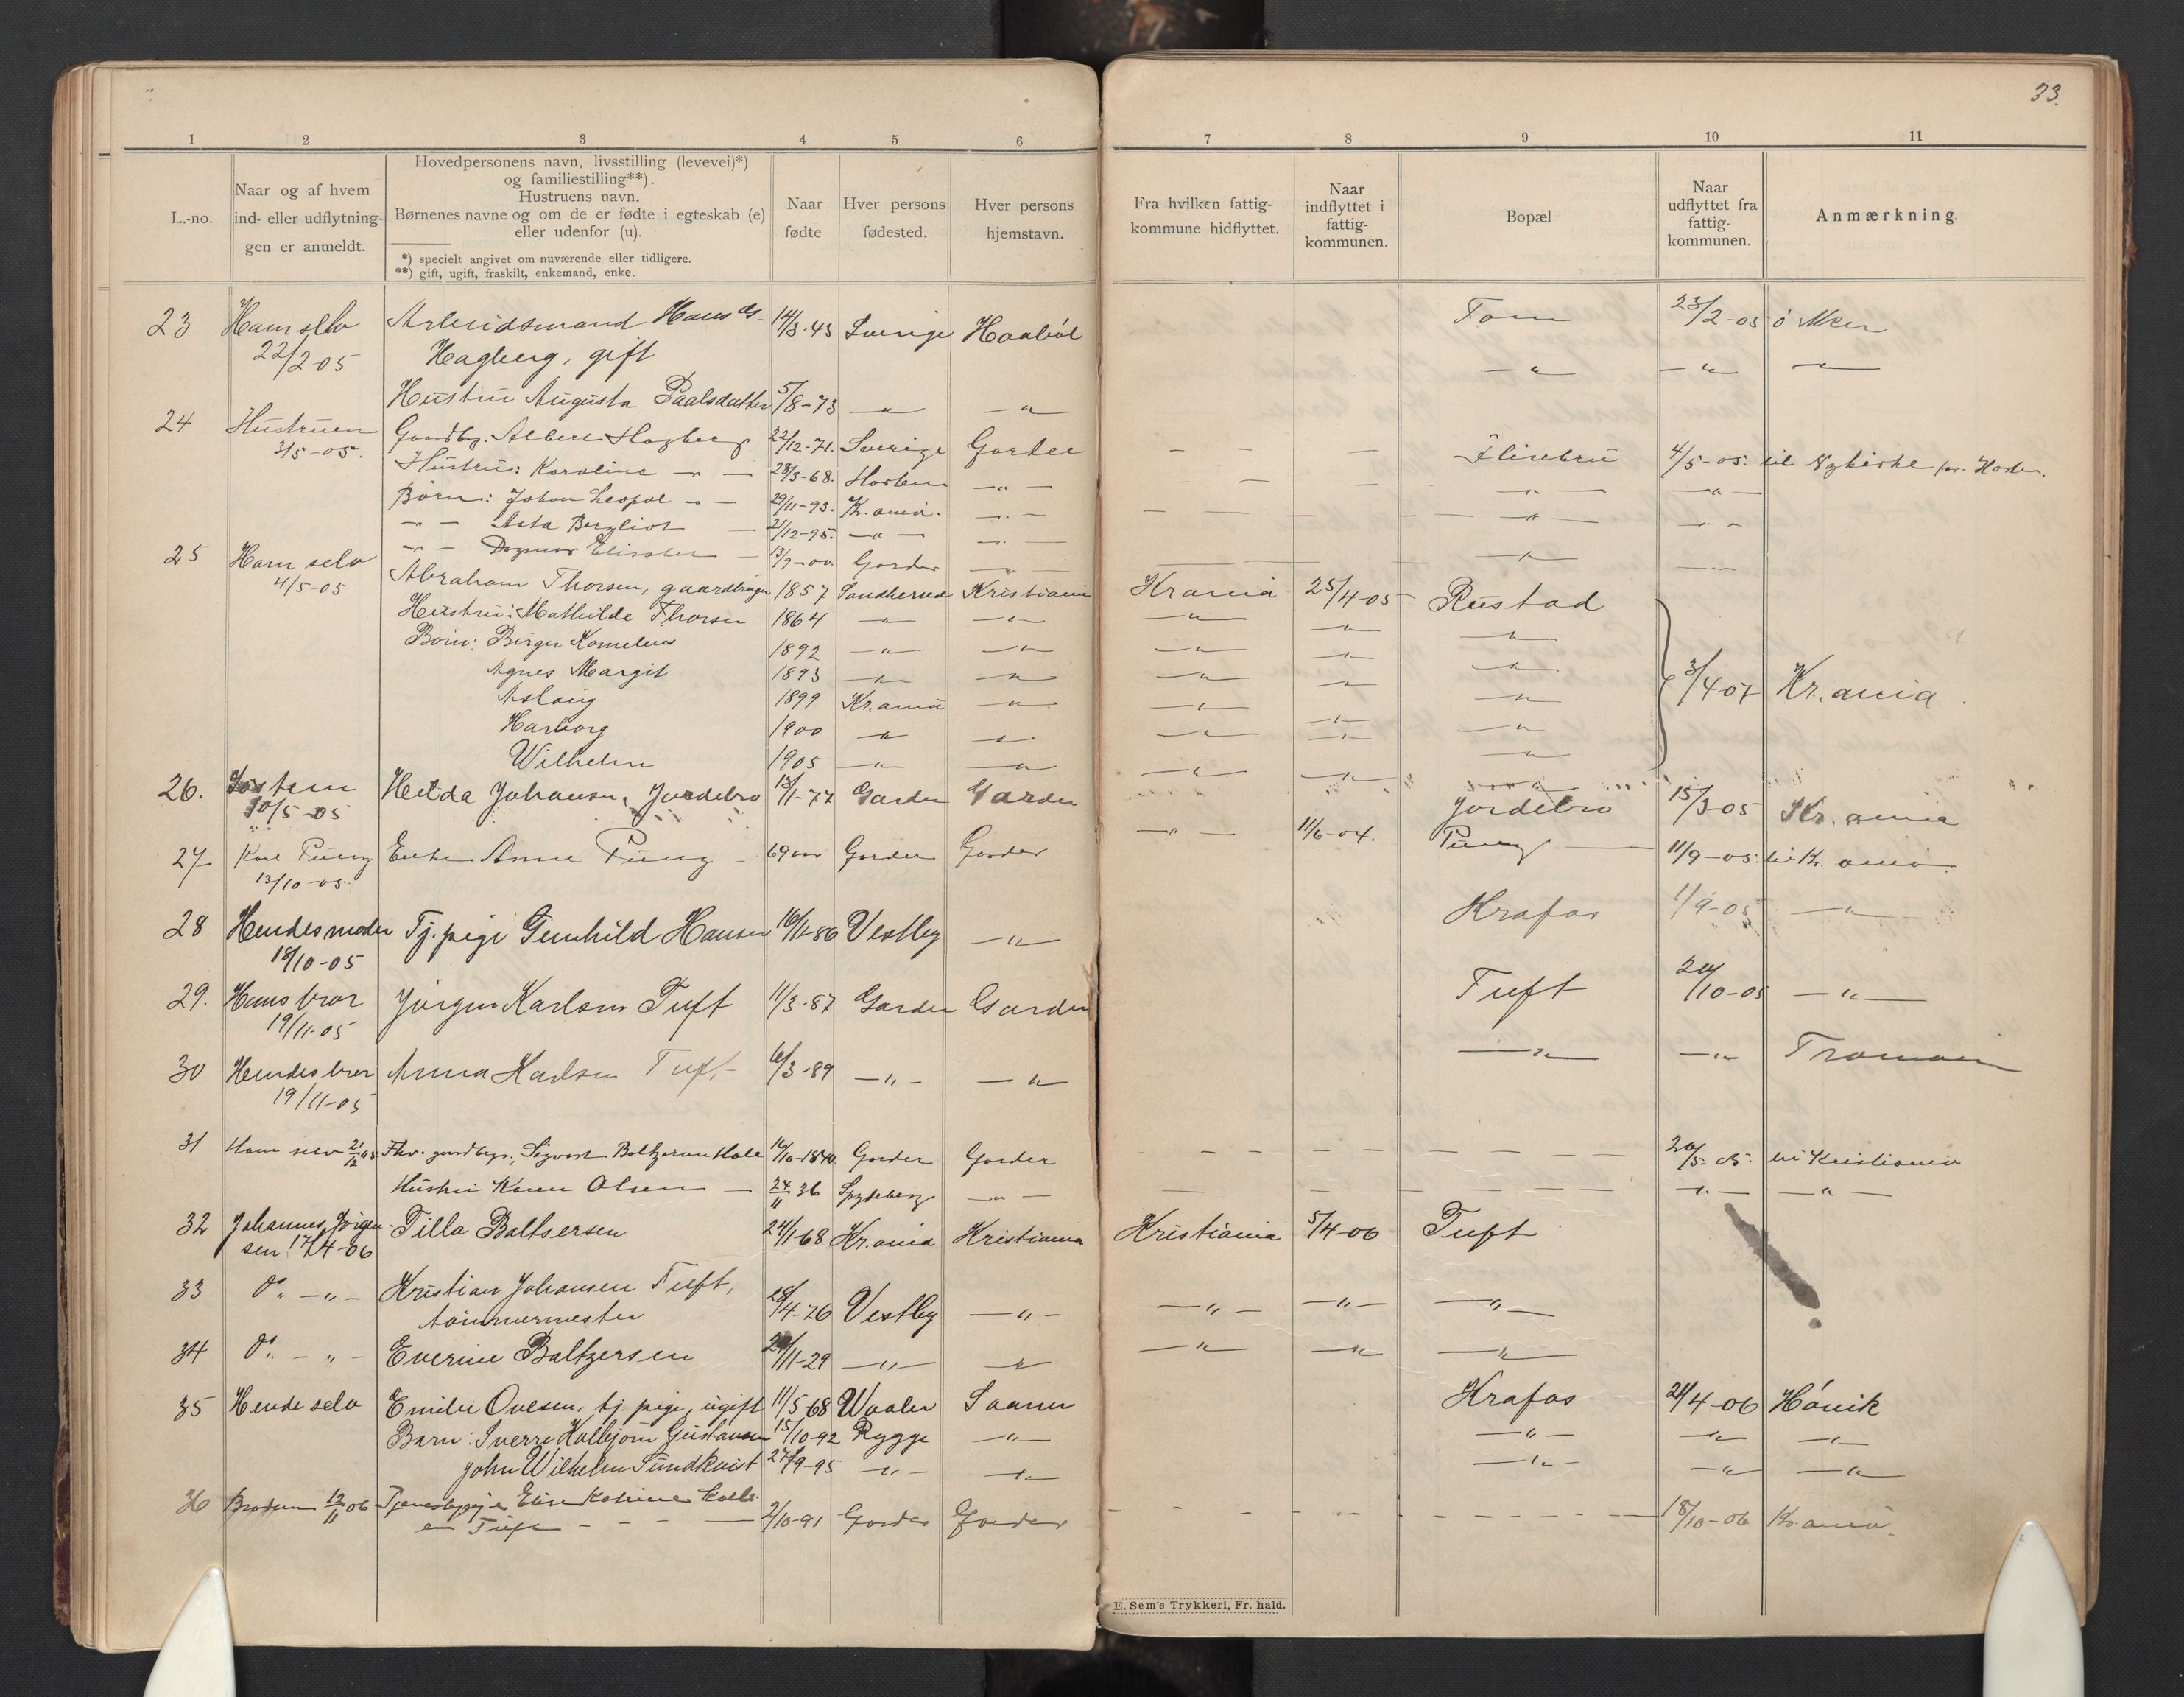 33.
1 2 3 4 5 6 7 8 9 10 11
L.-no.
Naar og af hvem
ind- eller udflytnin-
gen er anmeldt.
Hovedpersonens navn, livsstilling (levevei)*)
og familiestilling**).
Hustruens navn.
Børnenes navne og om de er fødte i egteskab (e)
eller udenfor (u).
*) specielt angivet om nuværende eller tidligere.
**) gift, ugift, fraskilt, enkemand, enke.
Naar
fødte
Hver persons
fødested.
Hver persons
hjemstavn.
Fra hvilken fattig-
kommune hidflyttet.
Naar
indflyttet i
fattig-
kommunen.
Bopæl
Naar
udflyttet fra
fattig-
kommunen.
Anmærkning.
23 Ham selv Arbeidsmand Hans 14/3-43 Sverige Haabøl Tom 23/2-05 Ø Aker
22/2 05 Hagberg, gift — " — — " — — " —
Hustru Augusta Paalsdatter 5/8-73 — " — — " —
24 Hustruen Gaardbr. Albert Hagberg 22/12-71. Sverige Garder — — — 4/5-05. til Nykirke pr. Horten.
3/5-05. Hustru: Karoline — " — 28/3-68. Horten — " — — " — — " —
Børn: Johan Leopol — " — 29/11-93. Kr.ania. — " — — " — — " —
— " — Asta Bergliot — 2/12-95. — " — — " — — " —
— " — Dagmar — 13/9-00. Garder — " — — " —
25 Ham selv Abraham Thorsen, gaardbruger 1857 Sandherred Kristiania Krania 25/4-05 Rustad
4/5-05 Hustru: Mathilde Thorsen 1864 — " — — " — — " — — " — — " —
Børn: Birger Kornelius 1892 — " — — " — — " — — " — — " —
Agnes Margit 1893 — " — — " — — " — — " — — " — 3/4-07 Kr.ania.
Aslaug 1899 Kr.ania — " — — " — — " — — " —
Harborg 1900 — " — — " — — " — — " — — " —
Wilhelm 1905 — " — — " — — " — — " —
26. Hilda Johansen, Jordebro 1-77 Garder Garder Jordebro 15/3-05 Kr.ania
10/5-05
27. Karl Pung Enke Anne Pung — 69 aar Garder Garder — " — 11/6-04. Pung — 11/9-05. til Kr.ania.
13/10-05.
28 Hendes moder Tj.pige Gunhild Hansen 16/11-86 Vestby — " — Krafos 1/9-05 — " —
18/10-05
29. Hans bror Jørgen Karlsen Tuft 11/3-87 Garder Garder Tuft 20/10-05 — " —
19/11-05
30 Hendes bror Anna Karlsen Tuft — 6/3-89 — " — — " — — " — — " —
19/11-05
31 Ham selv 21/12 05 Fhv. gaardbr. Sigvart Baltzersen 16/10-1840 Garder Garder — — — 20/5-05. til Kristiania
Hustru Karen Olsen — 24/11 36 Spydeberg — " — — — — " — — " —
32 Johannes Jørgen- Tilla Baltsersen 24/1-68 Kr.ania Kristiania Kristiania 5/4-06 Tuft
sen 17/4-06
33 Do. — " — Kristian Johansen Tuft, 28/4-26 Vestby — " — — " — — " — — " —
tømmermester
34 Do. — " — Everine Baltzersen 11-29 — " — — " — — " — — " — — " —
35 Hende selv Emilie Ovesen, tj. pige, ugift 11/5-68 Waaler Saaner Krafos 21/4-06 Høvik
Barn: Sverre Kolbjørn Gustavsen 15/10-92 Rygge — " — — " — — " — — " —
John Wilhelm Sundkvist 27/9-95 — " — — " — — " — — " — — " —
Broderen 12/11 06 Tjenestepige Elise Katrine Karls- 2/10-91 Garder Garder — — — 18/10-06 Kr.ania.
en Tuft — — —
E. Sem's Trykkeri, Fr. hald.